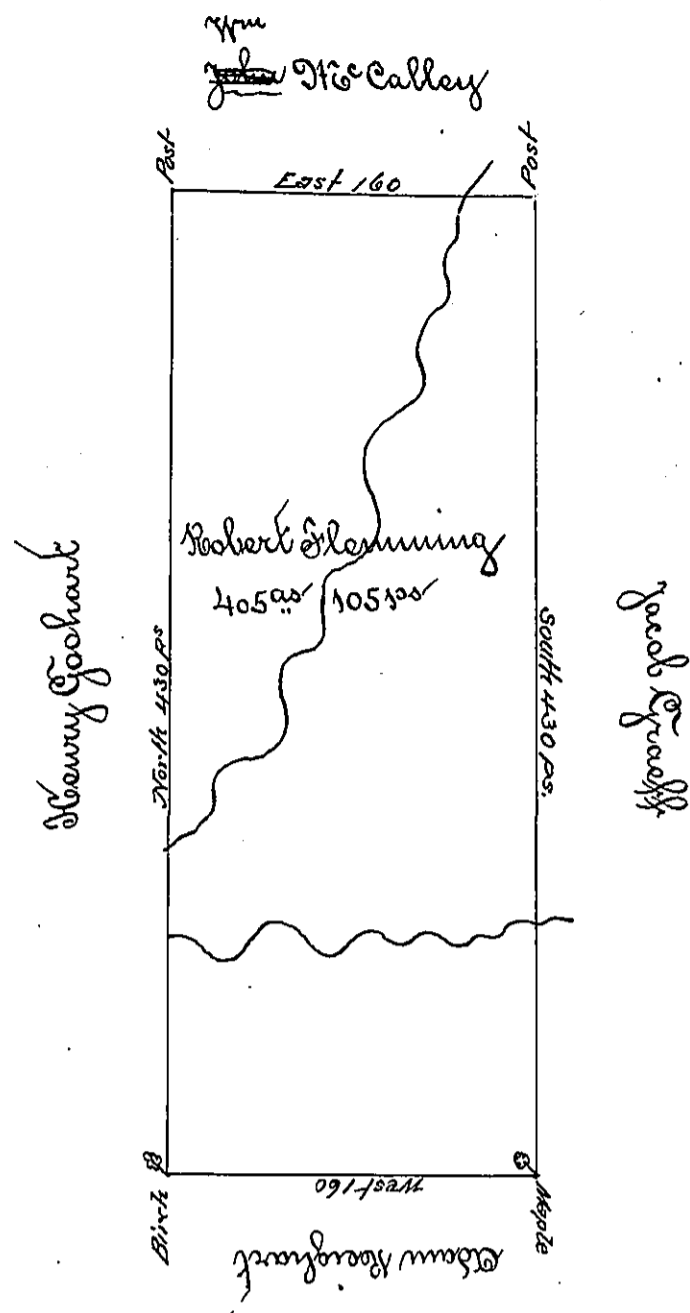 Wm
John McCalley
Post
East 160
Post
Henry Gochart
North 430 ps
Robert Flemming
405 as 105 ps
South 430 ps.
Jacob Graeff
Birch
West 160
Maple
Adam Reighart